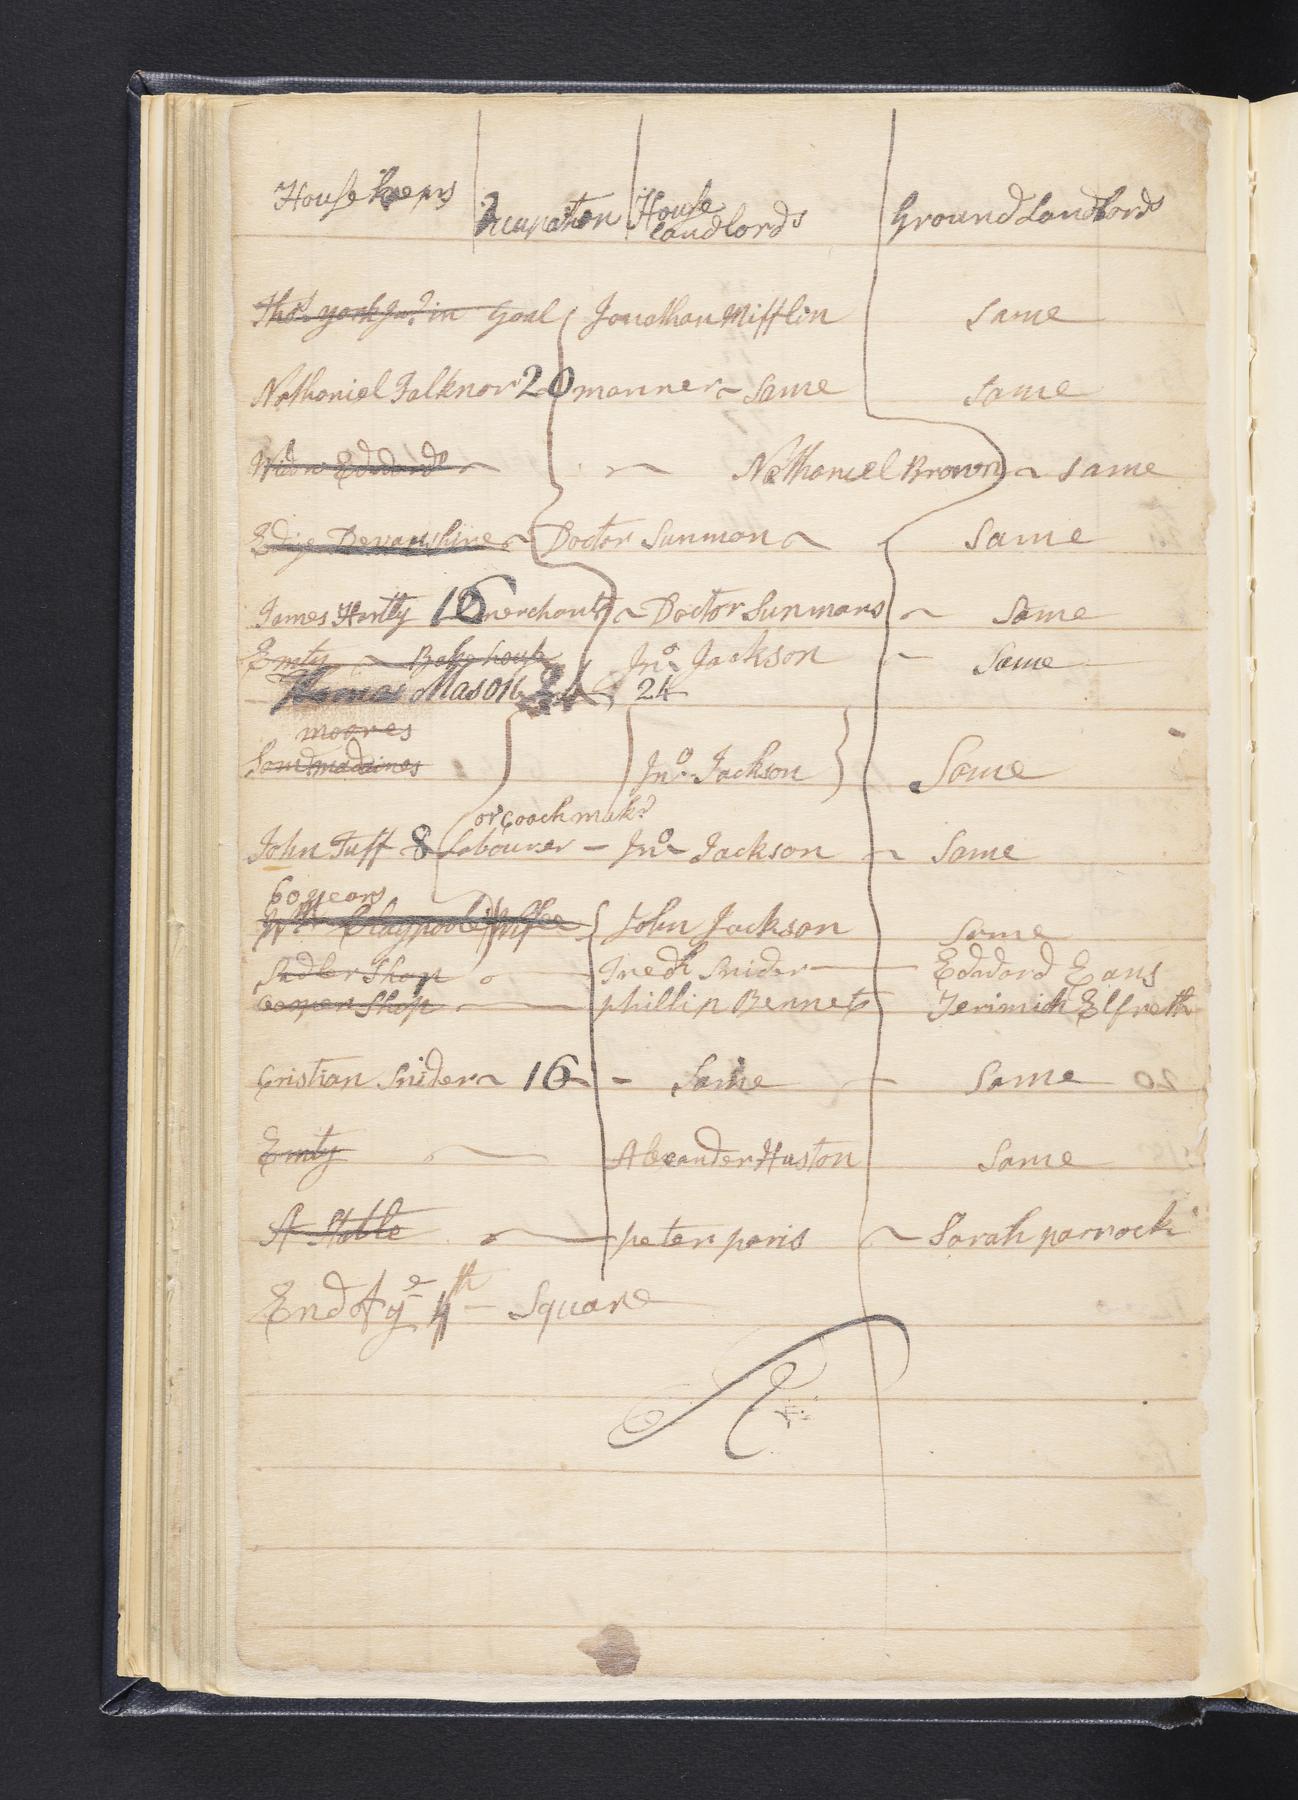 House keepers Occupation House Landlords Ground Landlords
Thos. york Jur. in Goal Jonathan Mifflin Same
Nathaniel Falknor 20 mariner Same Same
Widw Edwards Nathaniel Brown Same
Devanshire Doctor Sunmon Same
James Hartly 16 merchant Doctor Sunmans Same
Emty Bake house Jno. Jackson Same
Thomas Mason 24
moores
Jno. Jackson Same
or Coach makr
John Tuff 8 Labourer Jno. Jackson Same
60 years
Wm Claypoole Wife John Jackson Same
Sadler Shop Fredk Snider Edward Evans
Cooper Shop phillip Bennet Jerimiah Elfreth
Cristian Snider 16 Same Same
Emty Alexander Huston Same
A Stable peter paris Sarah parrock
End of ye 4th Square